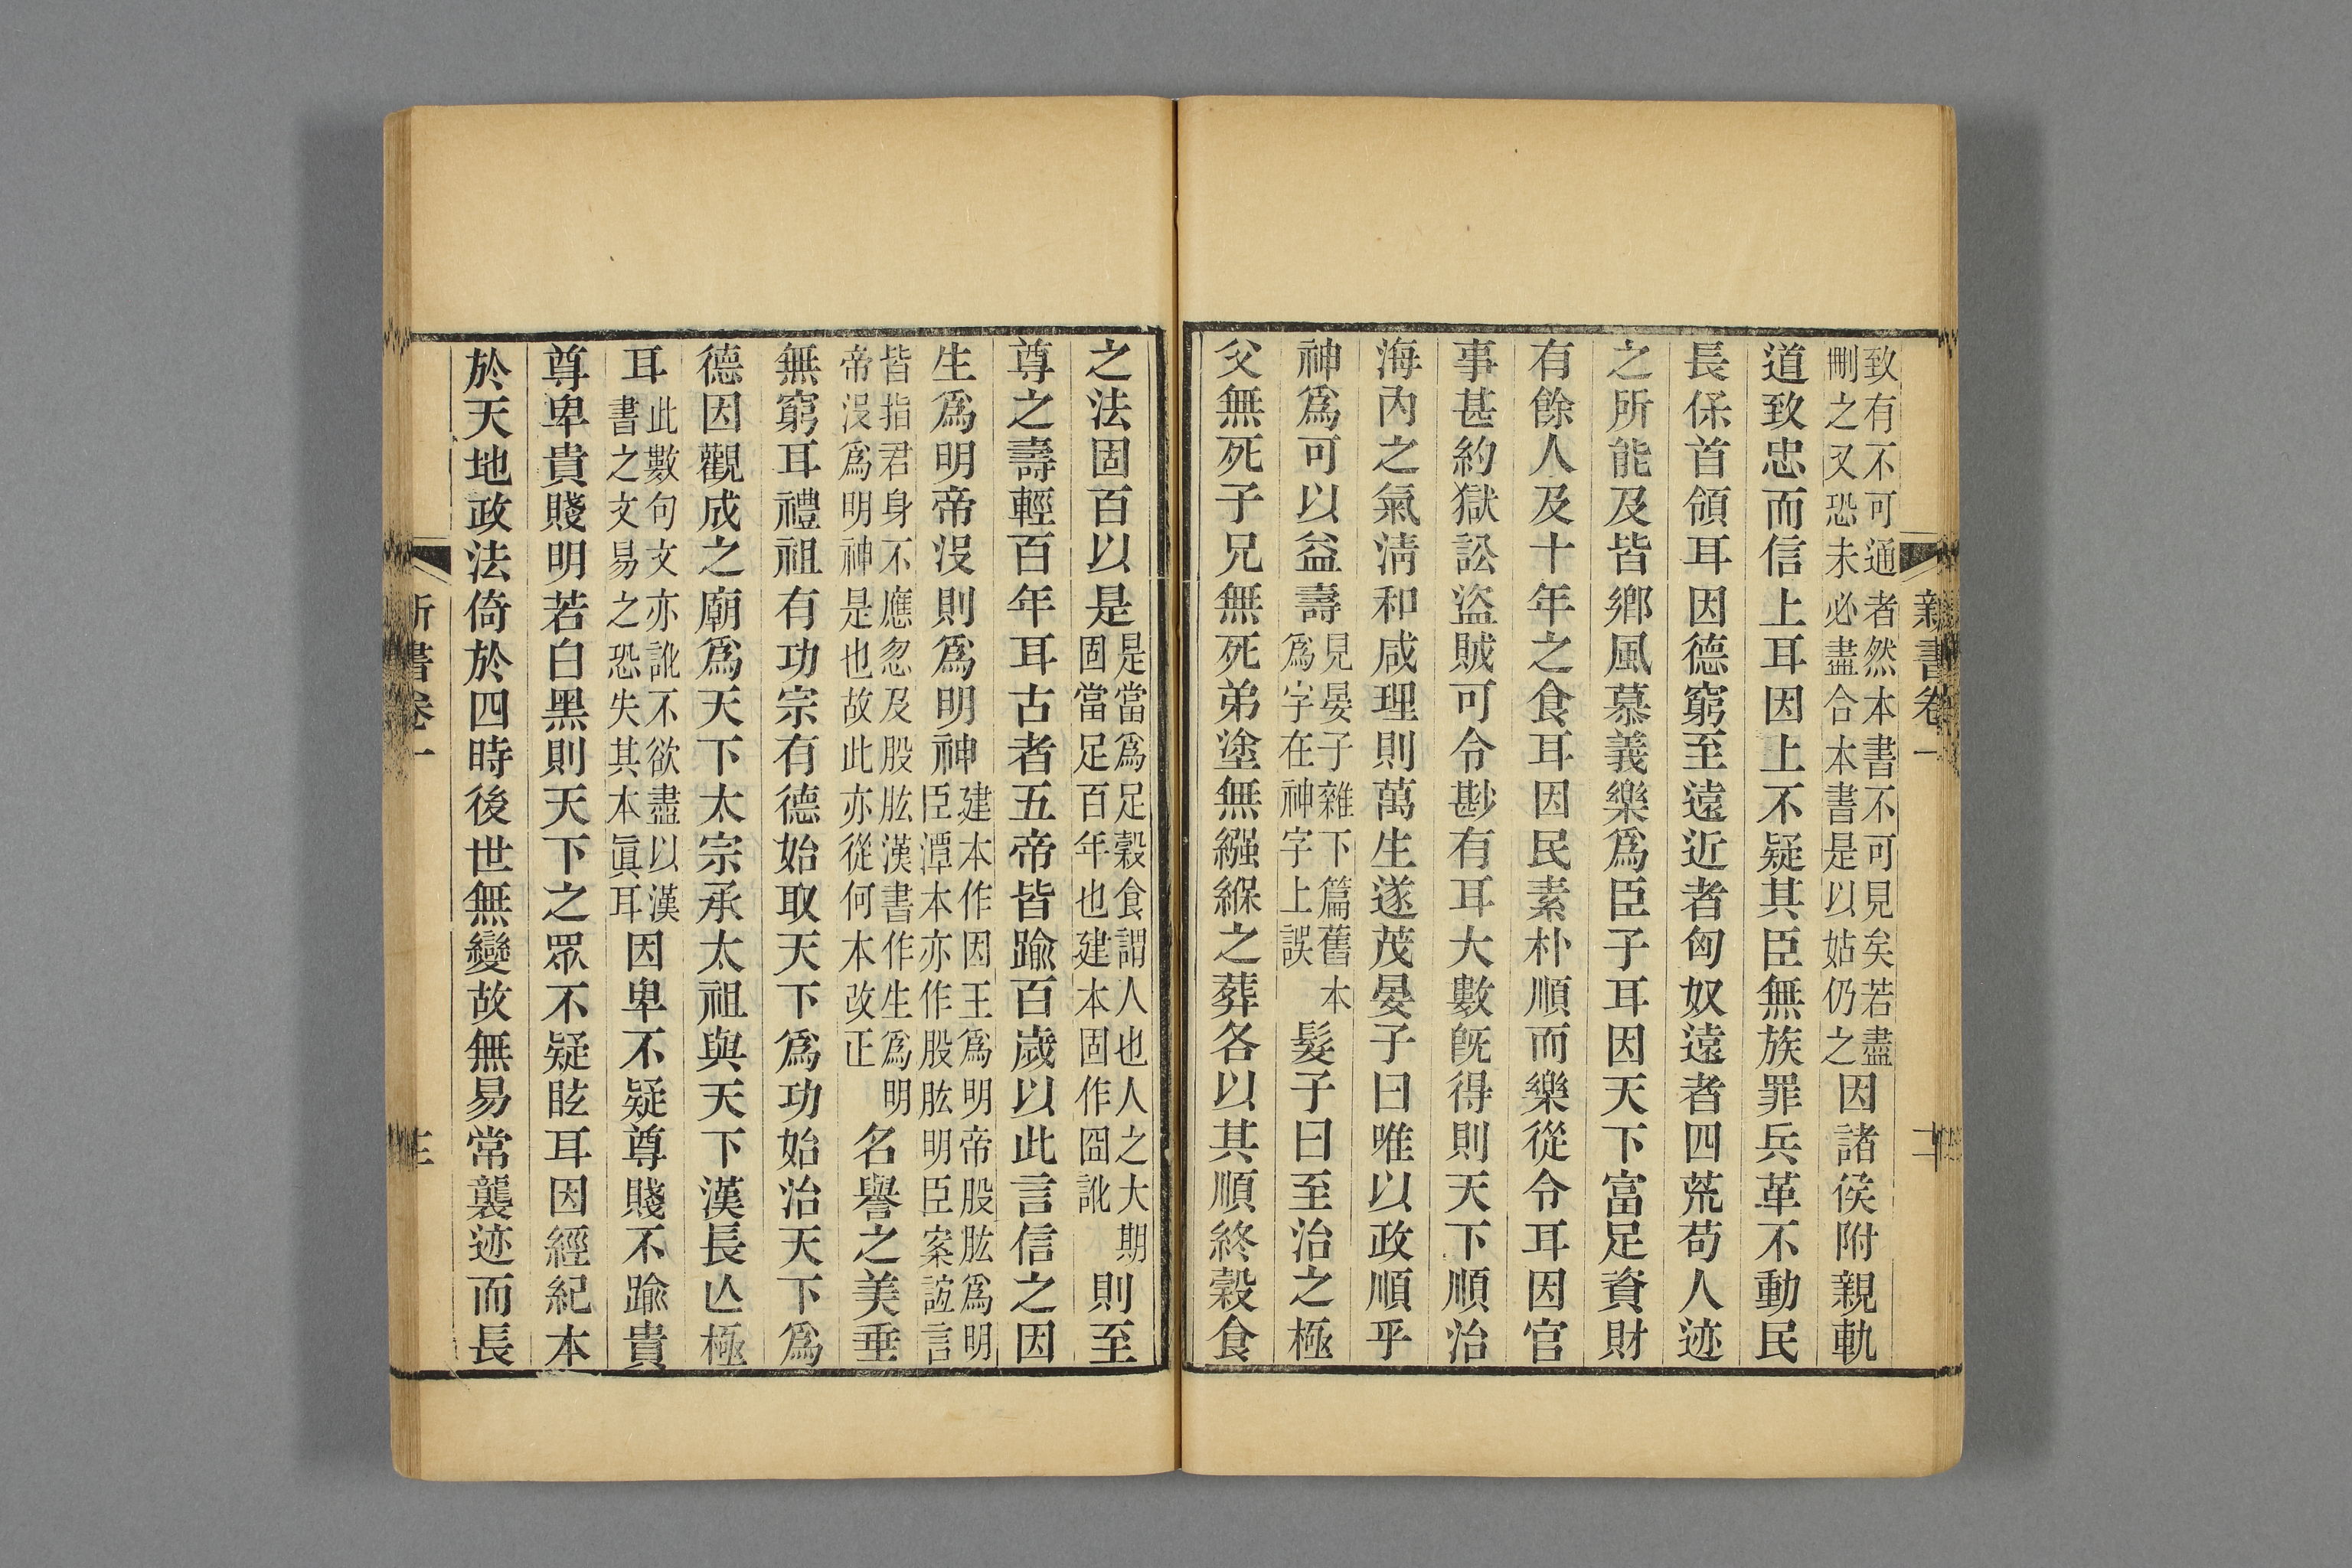 新書卷一
致有不可通者然本書不可見矣若盡
刪之又恐未必盡合本書是以姑仍之
因諸侯附親軌
道致忠而信上耳因上不疑其臣無族罪兵革不動民
長保首領耳因德窮至遠近者匈奴遠者四荒苟人迹
之所能及皆鄉風慕義樂爲臣子耳因天下富足資財
有餘人及十年之食耳因民素朴順而樂從令耳因官
事甚約獄訟盜賊可令尠有耳大數旣得則天下順治
海內之氣淸和咸理則萬生遂茂晏子曰唯以政順乎
神爲可以益壽
見晏子雜下篇舊本
爲字在神字上誤
髮子曰至治之極
父無死子兄無死弟塗無繦緥之葬各以其順終穀食
之法固百以是
是當爲足穀食謂人也人之大期
固當足百年也建本固作囼訛
則至
尊之壽輕百年耳古者五帝皆踰百歲以此言信之因
生爲明帝沒則爲明神
建本作因王爲明帝股肱爲明
臣潭本亦作股肱明臣案誼言
皆指君身不應忽及股肱漢書作生爲明
帝沒爲明神是也故此亦從何本改正
名譽之美垂
無窮耳禮祖有功宗有德始取天下爲功始治天下爲
德因觀成之廟爲天下太宗承太祖與天下漢長亾極
耳
此數句文亦訛不欲盡以漢
書之文易之恐失其本眞耳
因卑不疑尊賤不踰貴
尊卑貴賤明若白黑則天下之眾不疑眩耳因經紀本
於天地政法倚於四時後世無變故無易常襲迹而長
書卷一